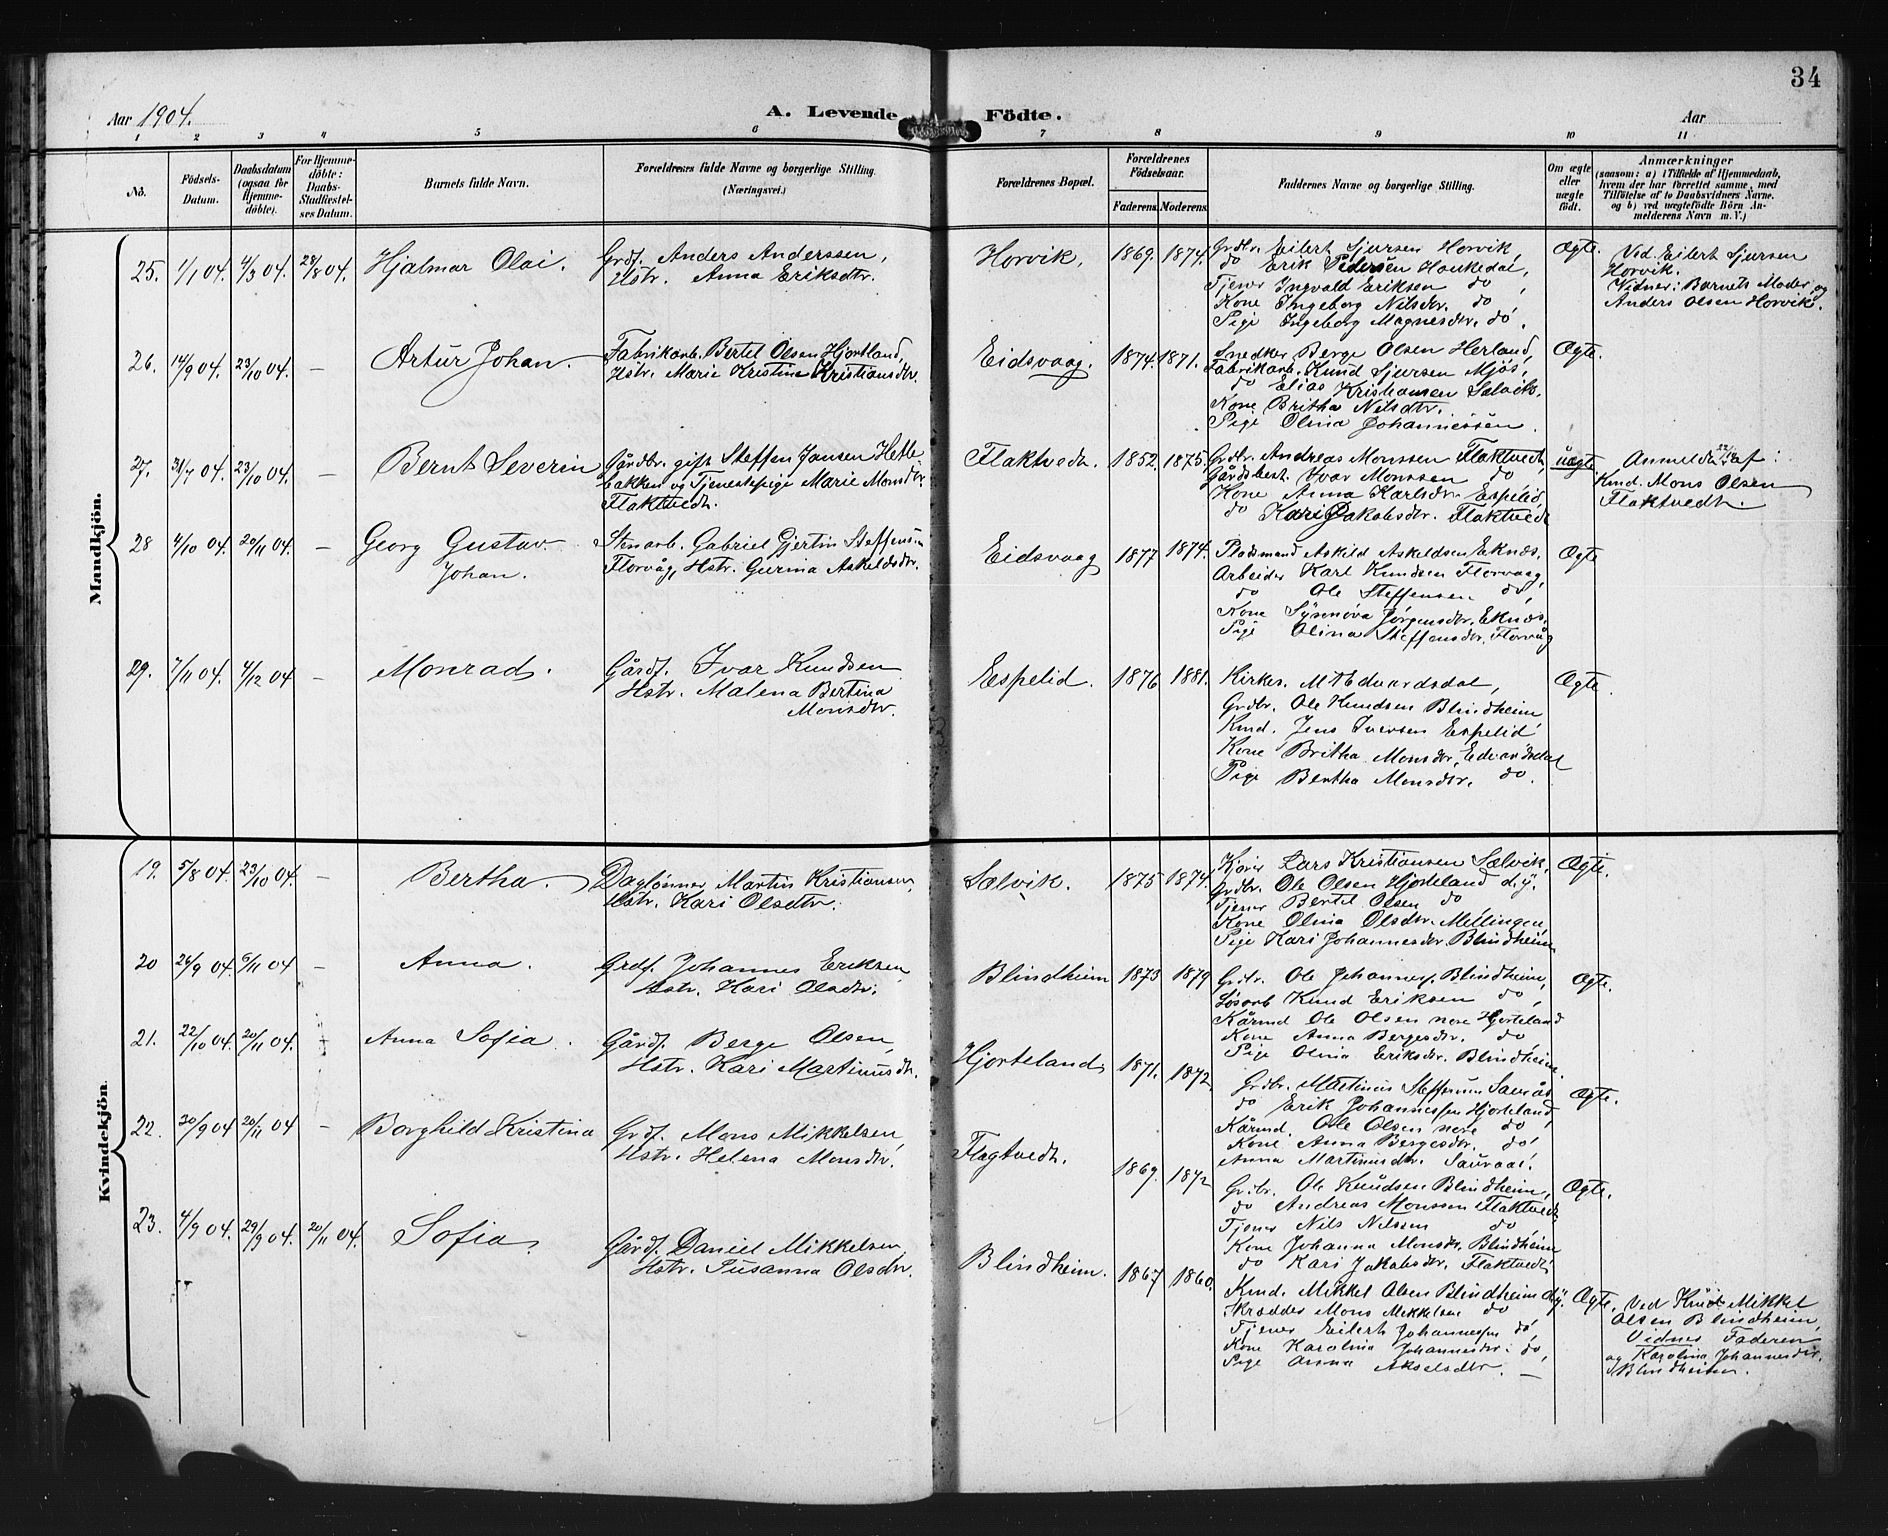 34
Aar 1904. A. Levende Födte. Aar
1 2 3 4 5 6 7 8 9 10 11
No. Födsels-Datum. Daabsdatum (ogsaa for Hjemmedöbte). For Hjemmedöbte: Daabs-Stadfæstelses Datum. Barnets fulde Navn. Forældrenes fulde Navne og borgerlige Stilling. (Næringsvei.) Forældrenes Bopæl. Forældrenes Födselsaar. Faderens. Moderens. Faddernes Navne og borgerlige Stilling. Om ægte eller uægte födt. Anmærkninger (saasom: a) i Tilfælde af Hjemmedaab, hvem der har forrettet samme, med Tilföielse af to Daabsvidners Navne. og b) ved uægtefödte Börn Anmelderens Navn m. V.)
Mandkjön.
25. 1/1 04. 4/3 04. 28/8 04. Hjalmar Olai.
Grdf. Anders Anderssen,
Hstr. Anna Eriksdtr.
Horvik. 1869. 1874.
Grdbr. Eilert Sjursen Horvik,
do Erik Pedersen Haukedal,
Tjener Ingvald Eriksen do,
Kone Ingeborg Nilsdtr. do,
Pige Ingeborg Magnesdtr. do.
Ægte.
Ved Eilert Sjursen
Horvik.
Vidner: Barnets Moder og
Anders Olsen Horvik.
26. 14/9 04. 23/10 04. — Artur Johan.
Fabrikarb. Bertel Olsen Hjortland,
Hstr. Marie Kristine Kristiansdtr.
Eidsvaag. 1874. 1871.
Snedker Berge Olsen Herland,
Fabrikarb. Knud Sjursen Mjös,
do Elias Kristiansen Sælvik.
Kone Britha Nilsdtr.
Pige Olina Johannessen.
Ægte.
27. 31/7 04. 23/10 04. — Bernt Severin
Gårdbr. gift Steffen Jansen Hetle-
bakken og Tjenestepige Marie Monsdtr
Flaktvedt.
Flaktvedt. 1852. 1875.
Grdbr. Andreas Monssen Flaktvedt
Gårdbest. Ivar Monssen do
Kone Anna Karlsdtr. Espelid,
do Kari Jakobsdtr. Flaktvedt
uægte.
Anmeldt af:
Kmd. Mons Olsen
Flaktvedt.
28 4/10 04. 20/11 04. — Georg Gustav
Johan.
Stenarb. Gabriel Gjertin Steffensen
Florvåg, Hstr. Gurina Askeldsdtr.
Eidsvaag 1877 1874.
Pladsmand Askild Askeldsen Eknæs.
Arbeider Karl Knudsen Florvaag,
do Ole Steffensen do,
Kone Synnöva Jörgensdtr. Eknæs.
Pige Olina Steffensdtr. Florvåg
Ægte
29. 7/11 04. 4/12 04 — Monrad.
Gårdf. Ivar Knudsen
Hstr. Malena Bertina
Monsdtr.
Espelid. 1876 1881.
Kirkes. M. Edvardsdal,
Grdbr. Ole Knudsen Blindheim,
Kmd. Jens Iversen Espelid,
Kone Britha Monsdtr. Edvardsdal
Pige Bertha Monsdtr. do.
Ægte.
Kvindekjön.
19. 5/8 04. 23/10 04. — Bertha.
Daglönner Martin Kristiansen,
Hstr. Kari Olsdtr.
Sælvik. 1875 1874.
Lars Kristiansen Sælvik,
Grdbr. Ole Olsen Hjorteland d.y.
Tjener Bertel Olsen do
Kone Olina Olsdtr. Mellingen,
Pige Kari Johannesdtr. Blindheim
Ægte.
20 26/9 04. 6/11 04 — Anna.
Grdf. Johannes Eriksen,
Hstr. Kari Olsdtr.
Blindheim 1873 1879
Grdbr. Ole Johanness. Blindheim,
Lösarb Knud Eriksen do,
Kårmd Ole Olsen nere Hjorteland
Kone Anna Bergesdtr. do
Pige Olina Eriksdtr. Blindheim.
Ægte.
21. 22/10 04. 20/11 04. Anna Sofia.
Gårdf. Berge Olsen,
Hstr. Kari Martinusdtr.
Hjorteland 1871. 1872
Grdbr. Martinus Steffensen Sauraas
do Erik Johannessen Hjorteland,
Kårmd Ole Olsen nere do,
Kone Anna Bergesdtr. do,
Anna Martinusdtr. Sauraas.
Ægte.
22. 30/9 04. 20/11 04 — Borghild Kristina
Grdf. Mons Mikkelsen,
Hstr. Helena Monsdtr.
Flagtvedt. 1869. 1872
Grdbr. Ole Knudsen Blindheim,
do Andreas Monssen Flaktvedt
Tjener Nils Nilssen do,
Kone Johanna Monsdtr. Blindheim
do Kari Jakobsdtr. Flaktvedt
Ægte.
23. 4/9 04. 29/9 04. 20/11 04. Sofia.
Gårdf. Daniel Mikkelsen,
Hstr. Susanna Olsdtr.
Blindheim. 1867 1860.
Kmd. Mikkel Olsen Blindheim d.y.
Skrædder Mons Mikkelsen do
Tjener Eilert Johannessen do,
Kone Karolina Johannesdtr. do,
Pige Anna Akselsdtr. —
Ægte.
Ved Knud Mikkel
Olsen Blindheim,
Vidner Faderen
og Karolina Johannesdtr.
Blindheim.